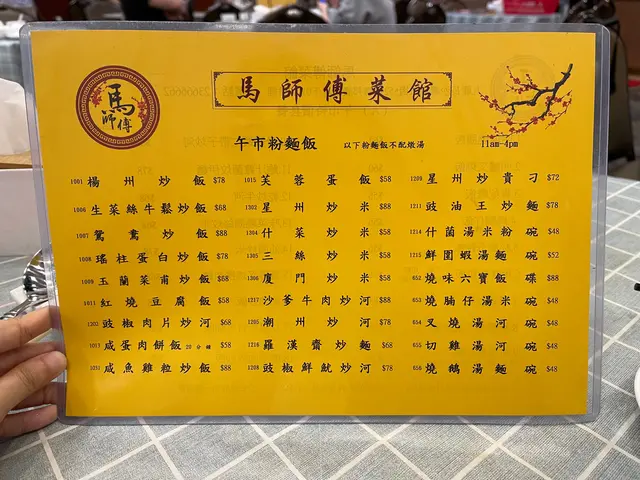 馬師傅
馬師傅菜館
午市粉麵飯 以下粉麵飯不配燉湯 11am-4pm
1001 楊州炒飯 $78
1006 生菜絲牛鬆炒飯 $68
1007 鴛鴦炒飯 $88
1008 瑤柱蛋白炒飯 $78
1009 玉蘭菜甫炒飯 $68
1011 紅燒豆腐飯 $58
1202 豉椒肉片炒河 $68
1013 咸蛋肉餅飯 20分鐘 $58
咸魚雞粒炒飯 $88
1015 芙蓉蛋飯 $58
1302 星州炒米 $88
1304 什菜炒米 $58
1305 三絲炒米 $58
1306 廈門炒米 $58
1217 沙爹牛肉炒河 $88
1205 潮州炒河 $78
1216 羅漢齋炒麵 $68
1208 豉椒鮮魷炒河 $78
1209 星州炒貴刁 $72
1211 豉油王炒麵 $78
1214 什菌湯米粉 碗 $48
1215 鮮圍蝦湯麵 碗 $52
652 燒味六寶飯 碟 $88
653 燒腩仔湯米 碗 $48
654 叉燒湯河 碗 $48
655 切雞湯河 碗 $48
656 燒鵝湯麵 碗 $48